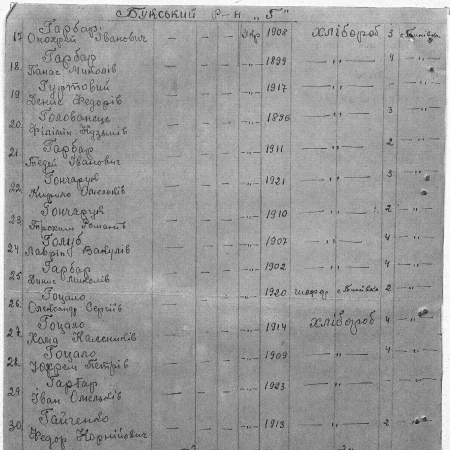 Букський р-н "Г"
17 Гарбар Онохрей Іванович — — Укр 1908 Хлібороб 3
18 Гарбар Панас Миколів — — — " — 1899 — " — 4 — " —
19 Гуртовий Денис Федорів — — — " — 1917 — " — — " —
20. Голованець Філімін Кузьмів — — — " — 1896 — " — 3 — " —
21 Гарбар Іванович — — — " — 1911 — " — 2 — " —
22. Гончарук Кирило Омельків — — — " — 1921 — " — 3 — " —
23 Гончарук Трохим — — — " — 1910 — " — 2 — " —
24 Голуб Лаврін Вакулів — — — " — 1907 — " — 4 — " —
25 Гарбар Динис Миколів — — — " — 1902 — " — 4 — " —
26. Гоцало Олександр Сергіїв — — — " — 1920 шофер 2
27. Гоцало Калеників — — — " — 1914 Хлібороб 4 — " —
28 Гоцало Юхрем Петрів — — — " — 1909 — " — 4 — " —
29 Гарбар Іван Омельків — — — " — 1923 — " — — " —
30. Гайченко Федор Корнійович — — — " — 1913 — " — 2 — " —